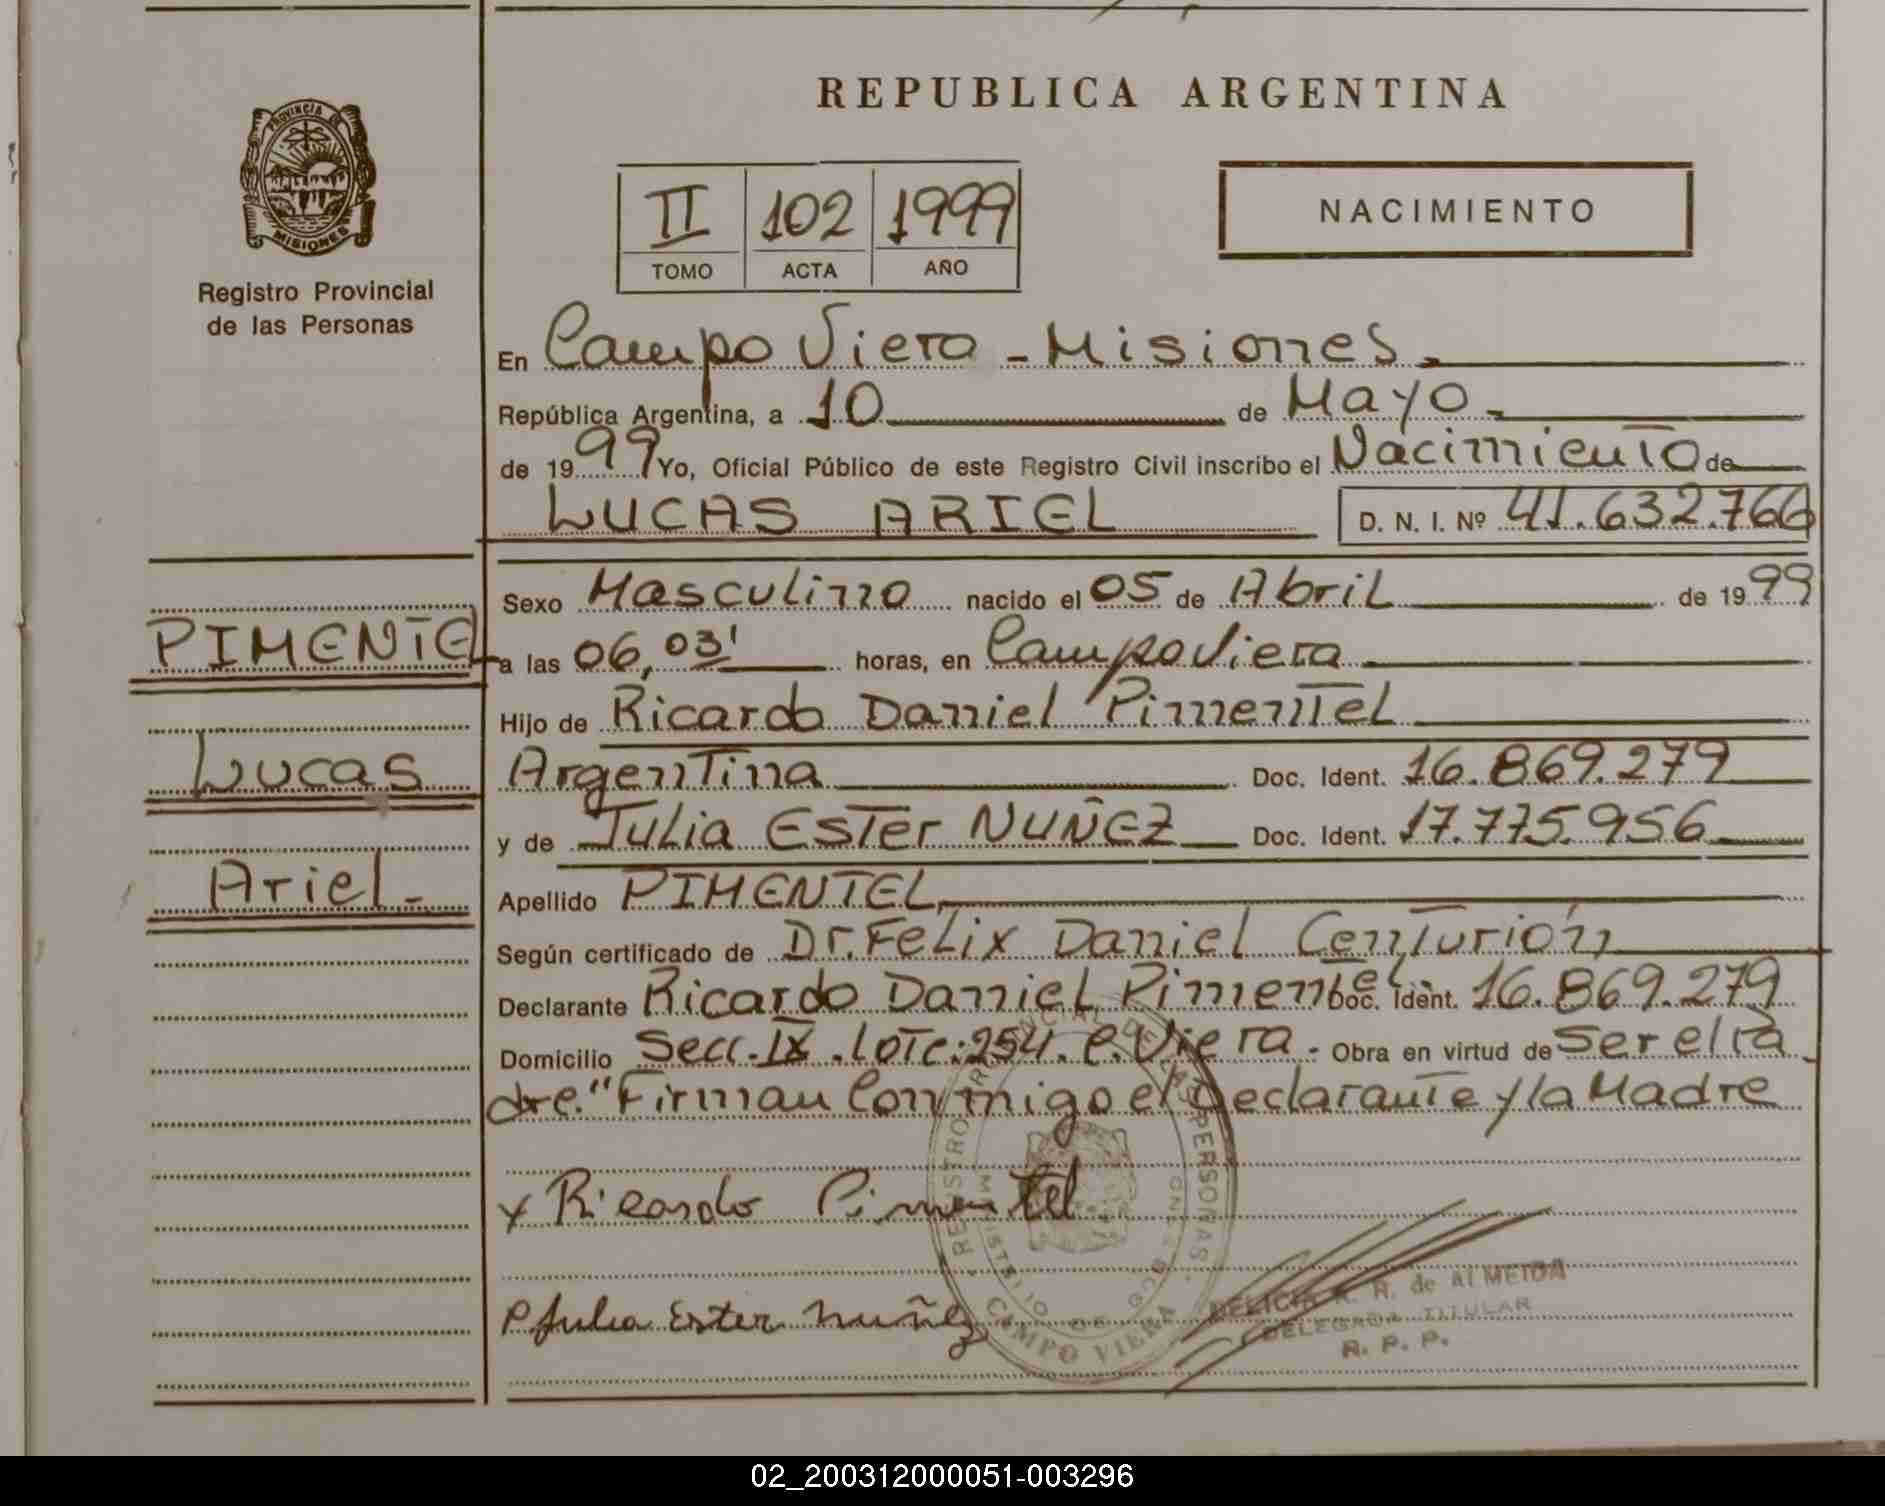 REPUBLICA ARGENTINA
PROVINCIA DE
MISIONES
Registro Provincial
de las Personas
II 102 1999
TOMO ACTA AÑO
NACIMIENTO
En Campo Viera - Misiones.
República Argentina, a 10 de Mayo.
de 1999 Yo, Oficial Público de este Registro Civil inscribo el Nacimiento de
LUCAS ARIEL D. N. I. Nº 41.632.766
PIMENTEL
Lucas
Ariel.-
Sexo Masculino nacido el 05 de Abril de 1999
a las 06,03' horas, en Campo Viera
Hijo de Ricardo Daniel Pimentel
Argentina Doc. Ident. 16.869.279
y de Julia Ester NUÑEZ Doc. Ident. 17.775.956
Apellido PIMENTEL
Según certificado de Dr. Felix Daniel Centurión
Declarante Ricardo Daniel Pimentel Doc. Ident. 16.869.279
Domicilio Secc. IX . Lote: 254. C. Viera - Obra en virtud de Ser el Pa
dre." Firman Conmigo el Declarante y la Madre
x Ricardo Pimentel
Julia Ester Nuñez
REGISTRO PROVINCIAL DE LAS PERSONAS
MINISTERIO DE GOB
CAMPO VIERA
DELICIA R. R. de ALMEIDA
DELEGADA TITULAR
R. P. P.
02_200312000051-003296